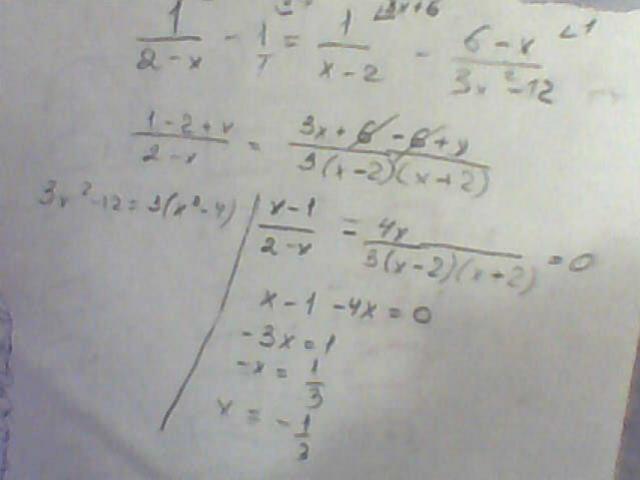 1/(2-x) - 1/1 = 1/(x-2) - (6-x)/(3x²-12)
(1-2+x)/(2-x) = (3x+6-6+x)/(3(x-2)(x+2))
3x²-12=3(x²-4)
(x-1)/(2-x) = 4x/(3(x-2)(x+2)) = 0
x-1-4x=0
-3x=1
-x=1/3
x=-1/3